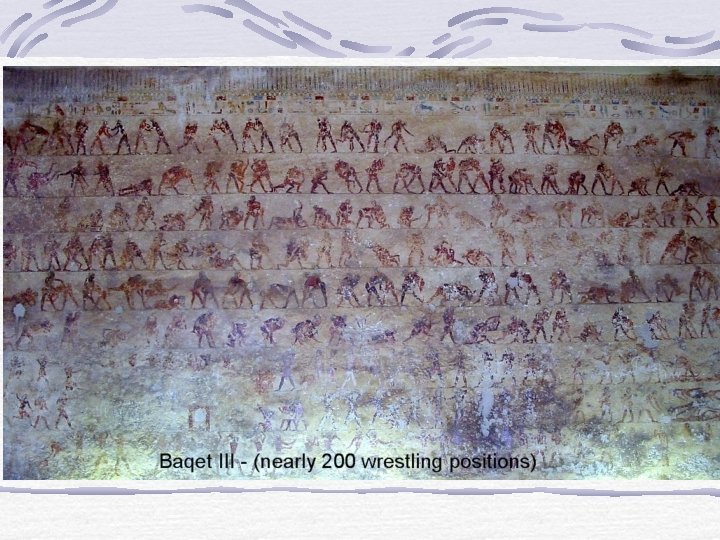 Baqet III - (nearly 200 wrestling positions)